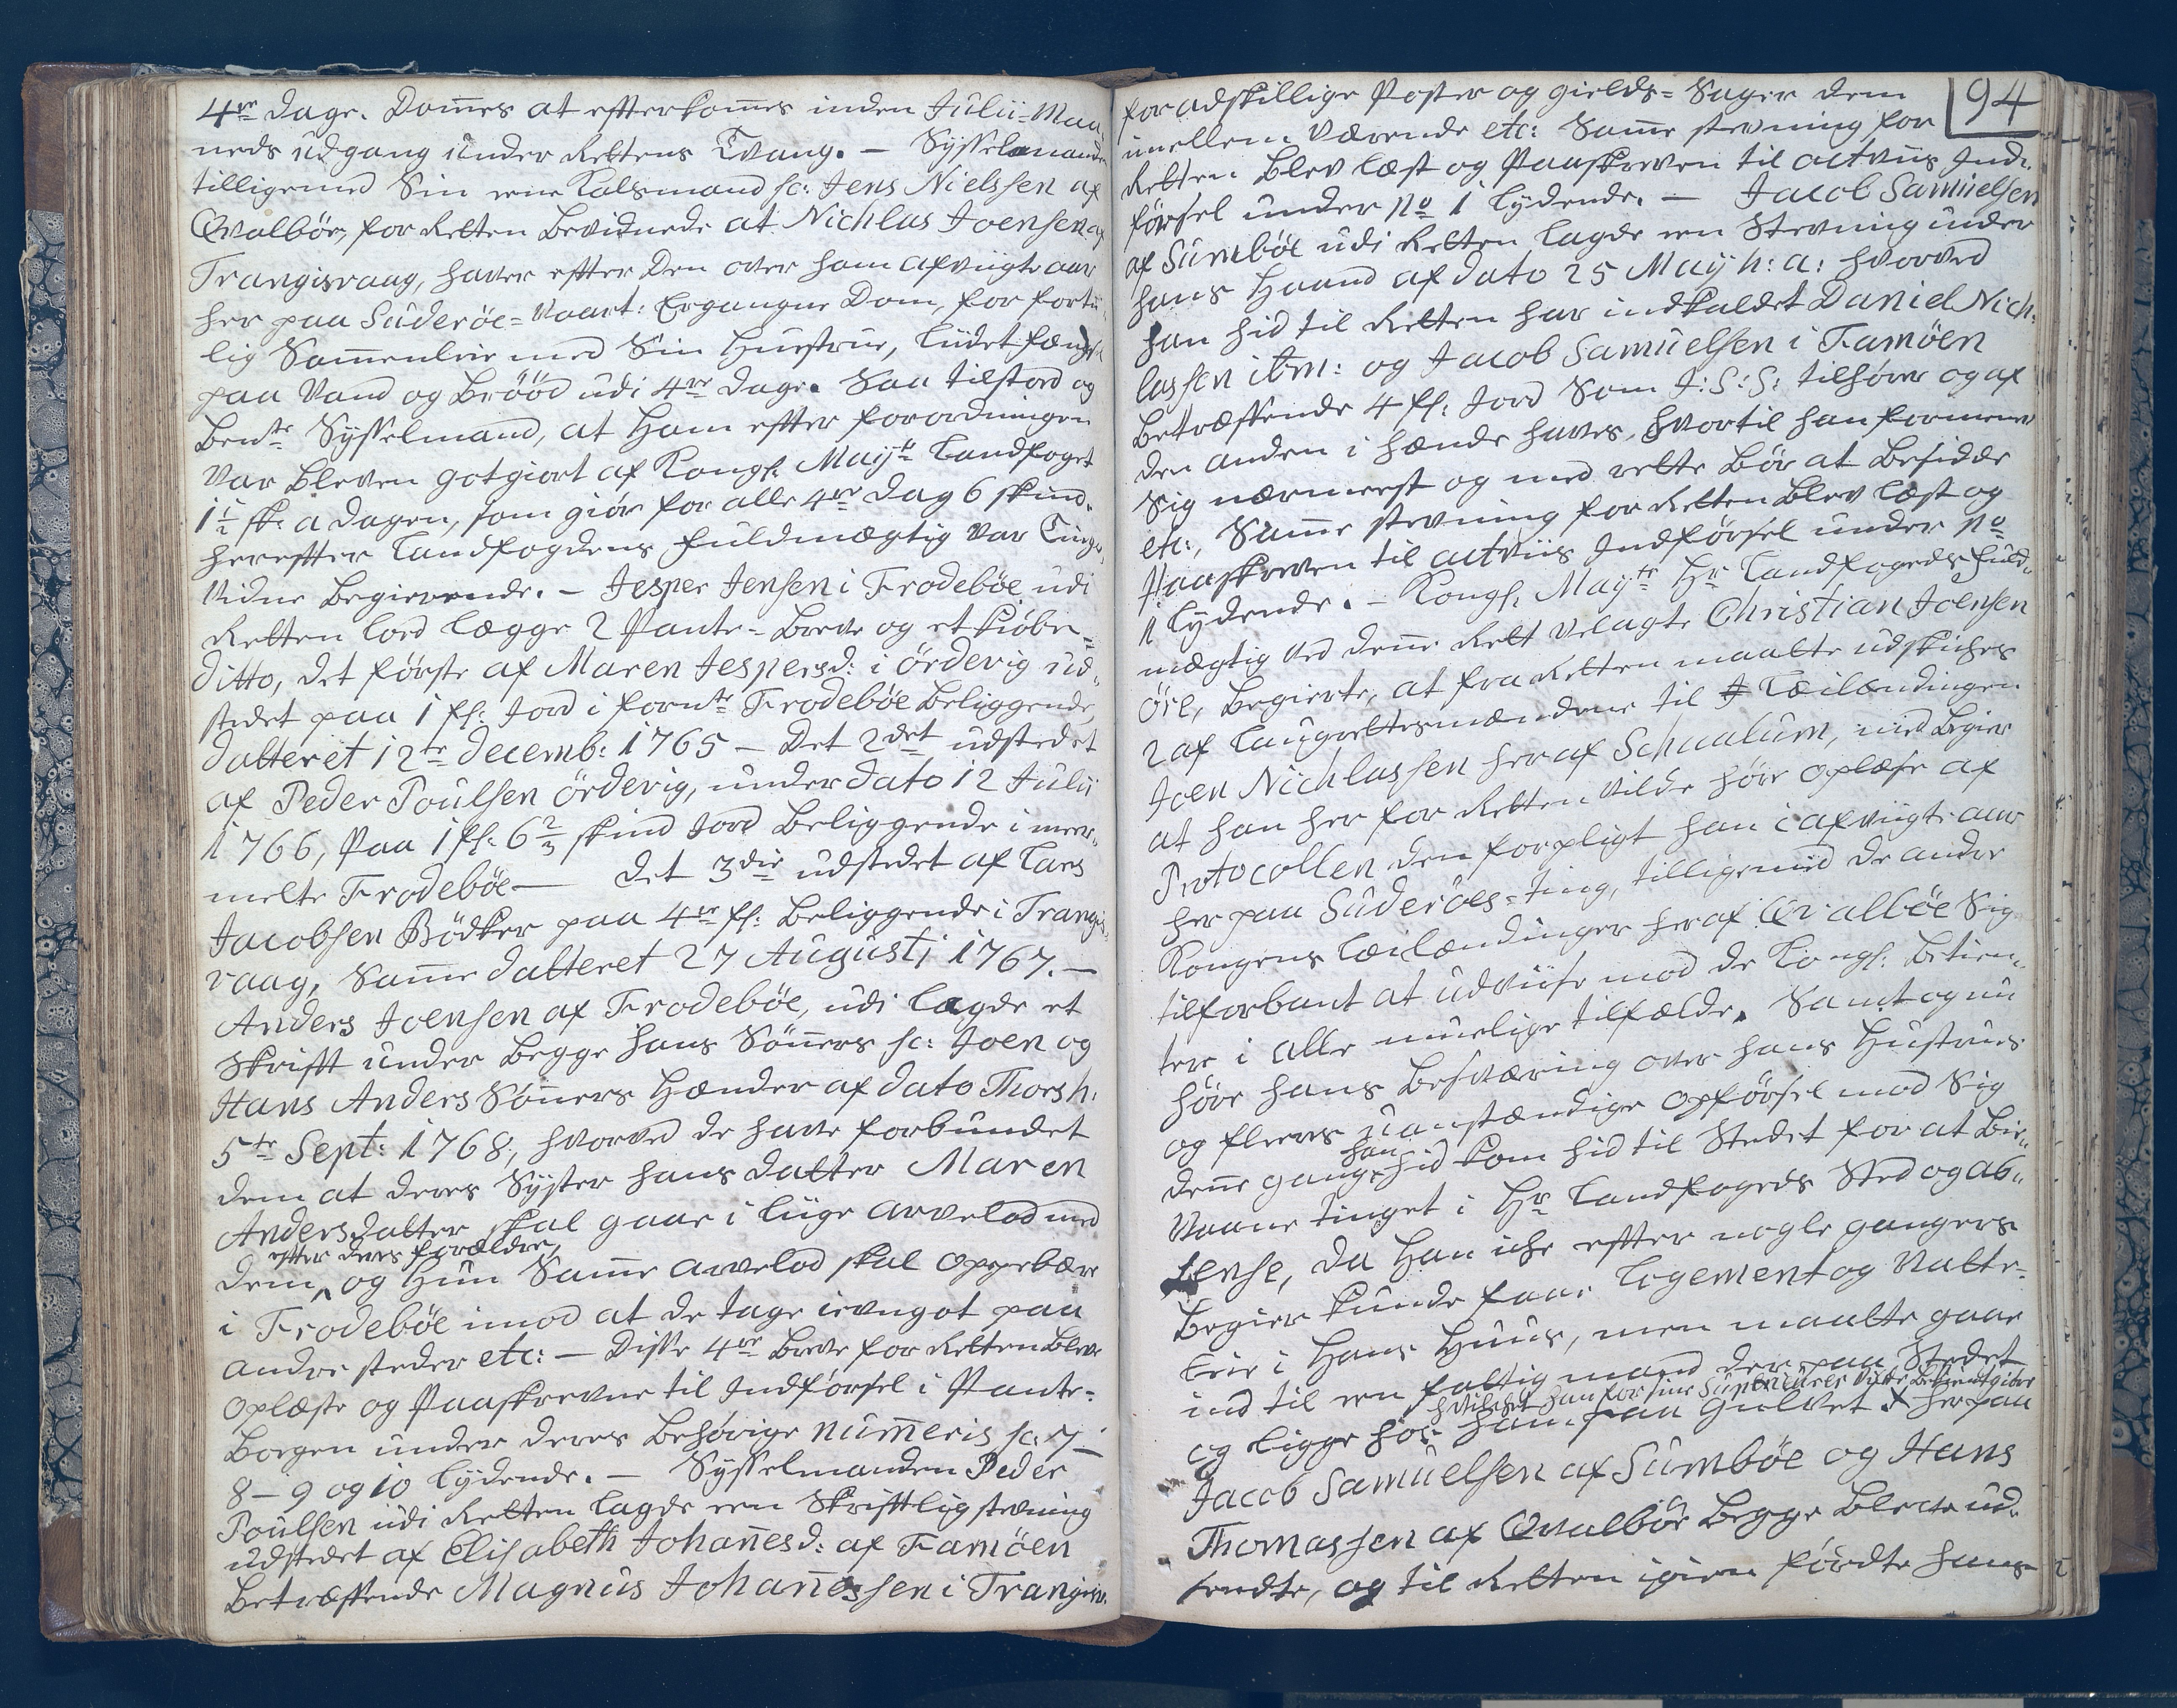 4re dage. Domes at efterkomes inden Julii-Maa-
neds udgang under Rettens Tvang. — Sysselmanden
tilligemed Sin eene Kalsmand sc: Jens Nielssen af
Qvalbøe, for Retten Bevidnede at Nichlas Joensen af
Trangisvaag, haver efter Den over ham afvigte aar
her paa Suderøe-Vaart: Ergangne Dom, for fortii-
lig Sammenleie med Sin Hustrue, lüdet fængsel
paa Vand og Brööd udi 4re dage. Saa tilstod og
Bemte Sysselmand, at Ham efter forordningen
Var bleven gotgiort af Kongl. Mayts Landfoget
1½ sk: a dagen, som giör for alle 4re dag 6 skind.
herefter Landfogdens fuldmægtig Var Tings-
Vidne Begierende. — Jesper Jensen i Frodebøe udi
Retten lod lægge 2 Pante-Breve og et kiöbe-
ditto, det förste af Maren Jespersd: i ördevig ud-
stedet paa 1 fl: Jord i fornte Frodebøe beliggende,
datteret 12te decemb: 1765 — Det 2det udstedet
af Peder Poulsen ördevig, under dato 12 Julii
1766, Paa 1 fl: 6⅔ skind Jord Beliggende i meer-
melte Frodebøe — det 3die udstedet af Lars
Jacobsen Bödker paa 4re fl: Beliggende i Trangis-
vaag, Same datteret 27 Augusti 1767. —
Anders Joensen af Frodebøe, udi lagde et
Skrift under Begge hans Sönners sc: Joen og
Hans Anders Sönners Hænder af dato Thorsh:
5te Sept: 1768, hvorved de have forbundet
dem at deres Syster hans datter Maren
Andersdatter skal gaae i liige arvelod med
efter deres forældre,
dem, og Hun Same arvelod skal oppebære
i Frodebøe imod at de tage ievngot paa
andre steder etc: — Disse 4re Breve for Retten Blev
oplæste og Paaskrevne til Indförsel i Pante-
Bogen under deres Behörige numeris sc: 7 —
8 — 9 og 10 lydende. — Sysselmanden Peder
Poulsen udi Retten lagde een Skriftlig stevning
udstedet af Elisabeth Johanesd: af Famöen
Betræffende Magnus Johanessen i Trangisv.
94
for adskillige Poster og gields-Sager dem
imellem Værende etc: Same stevning for
Retten Blev læst og Paaskreven til actviis Ind-
försel under No 1 lydende. — Jacob Samuelsen
af Sumbøe udi Retten lagde een Stevning under
hans Haand af dato 25 May h: a: hvorved
han hid til Retten har indkaldet Daniel Nich-
lassen ibm: og Jacob Samuelsen i Famöen
Betræffende 4 fl: Jord Som J: S: S: tilhörer og af
den anden i hænde haves, hvortil han formener
Sig nærmeest og med rette Bör at Besidde
etc:, Same stevning for Retten Blev læst og
Paaskreven til actviis Indförsel under No
1 lydende. — Kongl. Mayts Hr Landfogeds fuld-
mægtig ved dene Rett Velagte Christian Joensen
Öre, Begierte, at fra Retten maatte udskiches
2 af Laugrettesmændene til Leilændingen
Joen Nichlassen her af Schaalum, med Begier
at han her for Retten Vilde höre oplæse af
Protocollen den forpligt han i afvigte aar
her paa Suderöes-Ting, tilligemed de andre
Kongens Leilændinger her af Qvalbøe Sig
tilforbant at udviise mod de Kongl: Betien-
tere i alle muelige tilfælde. Samt og nu
höre hans Besværing over hans Hustrues
og fleeres uanstændige opförsel mod Sig
han
dene gang hid kom hid til Stedet for at Bie-
Vaane tinget i Hr Landfogeds Sted og ab-
sense, da Han iche efter nogle gangers
Begier kunde faae Logement og Natte-
leie i Hans Huus, men maatte gaae
ind til een fattig mand der paa Stedet
hvilchet han for sine Superieures Vilde bekientgiöre
og ligge hos ham paa gulvet X her paa
Jacob Samuelsen af Sumbøe og Hans
Thomassen af Qvalbøe Begge Bleve ud-
sendte, og til Retten igien förte hans